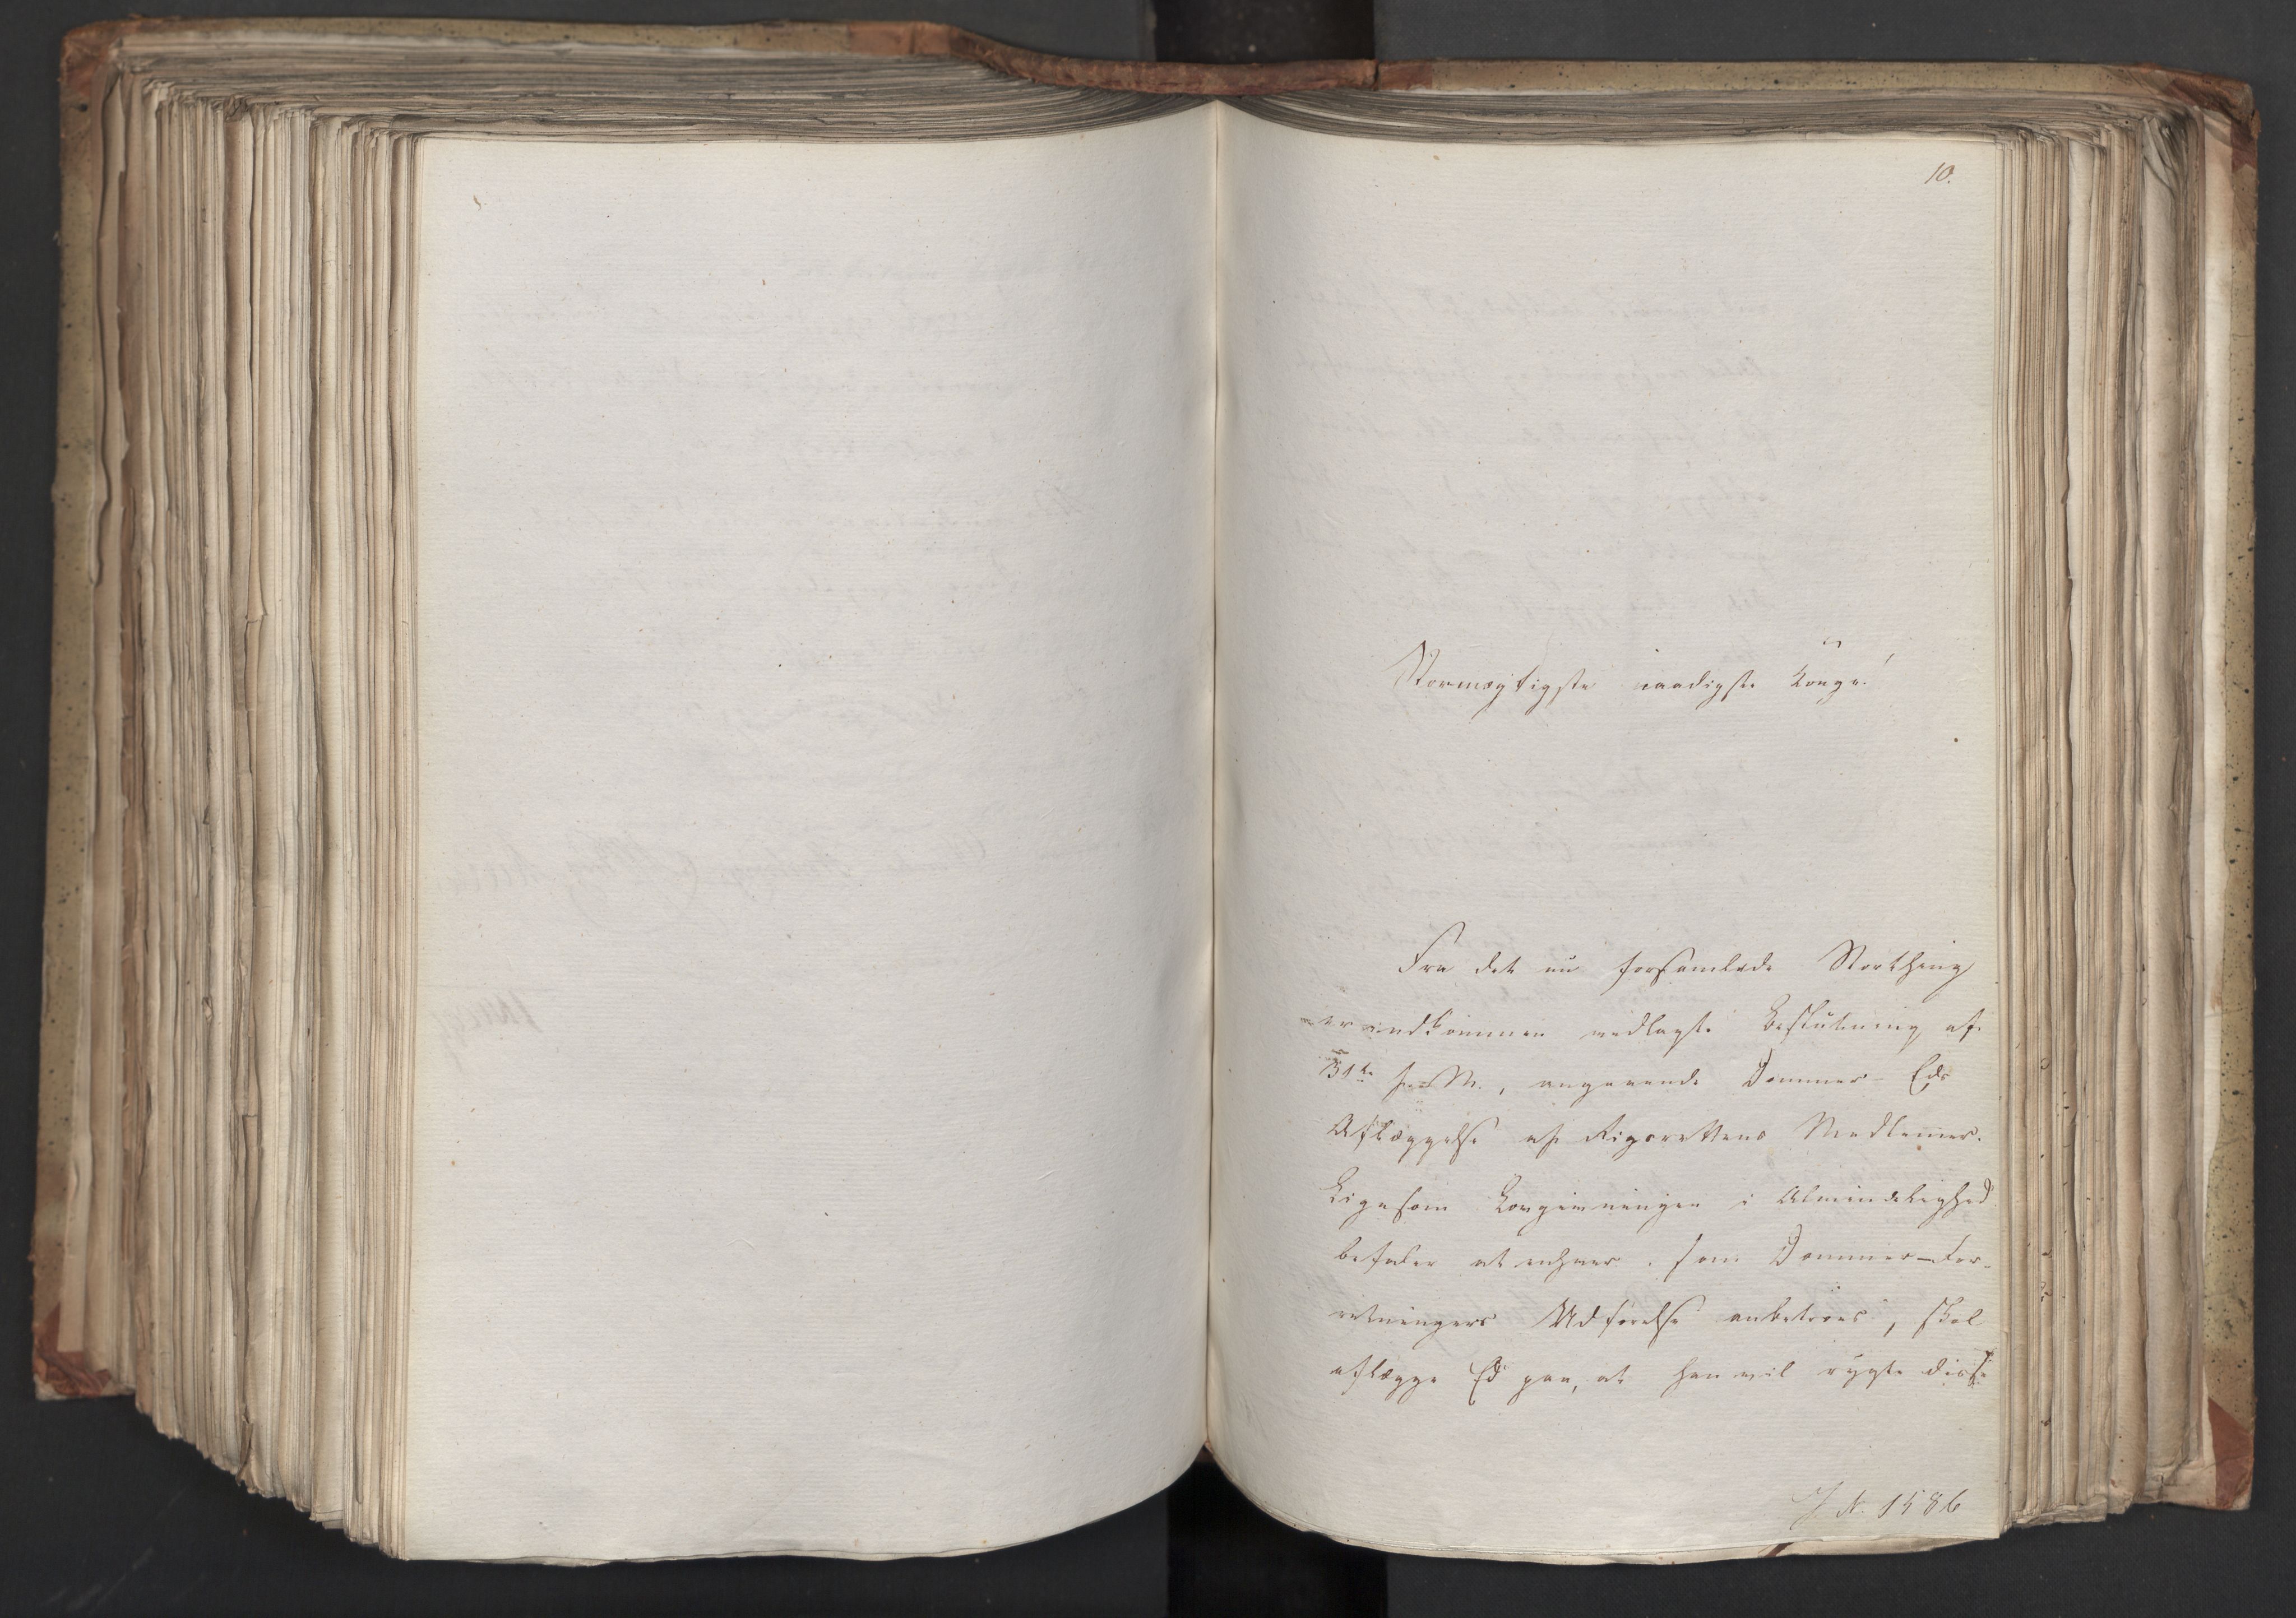 10.
Stormægtigste naadigste Konge!
Fra det nu forsamlede Storthing
er indkommen vedlagte Beslutning af
31te f. M., angaaende Dommer-Eds
Aflæggelse af Rigsrettens Medlemer.
Ligesom Lovgivningen i Almindelighed
befaler at enhver, som Dommer-For-
retningers Udførelse anbetroes, skal
aflægge Ed paa, at han vil røgte disse
J. N. 1586